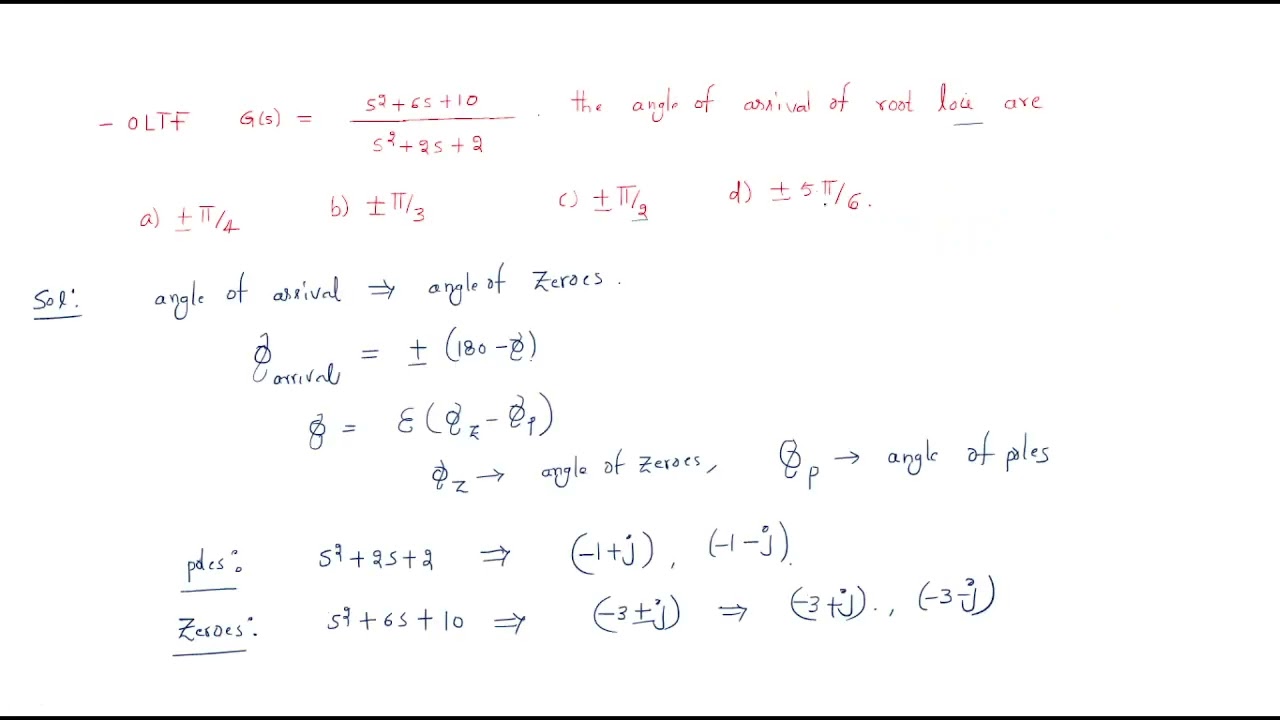 - OLTF G(s) = s²+6s+10 / s²+2s+2 . the angle of arrival of root loci are
a) ± π/4 b) ± π/3 c) ± π/2 d) ± 5π/6.
Sol: angle of arrival ⇒ angle of zeroes.
Φ arrival = ± (180 - Φ)
Φ = Σ (Φz - Φp)
Φz → angle of zeroes, Φp → angle of poles
poles: s²+2s+2 ⇒ (-1+j), (-1-j).
Zeroes: s²+6s+10 ⇒ (-3±j) ⇒ (-3+j)., (-3-j)